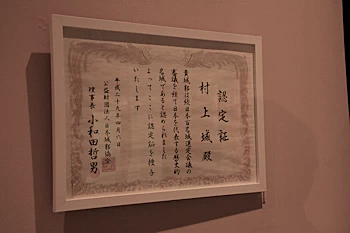 認定証
村上城殿
貴城郭は続日本百名城選定会議の
審議を経て日本を代表する歴史的
名城であると認められました
よってここに認定証を授与
いたします
平成二十九年四月六日
公益財団法人日本城郭協会
理事長 小和田哲男